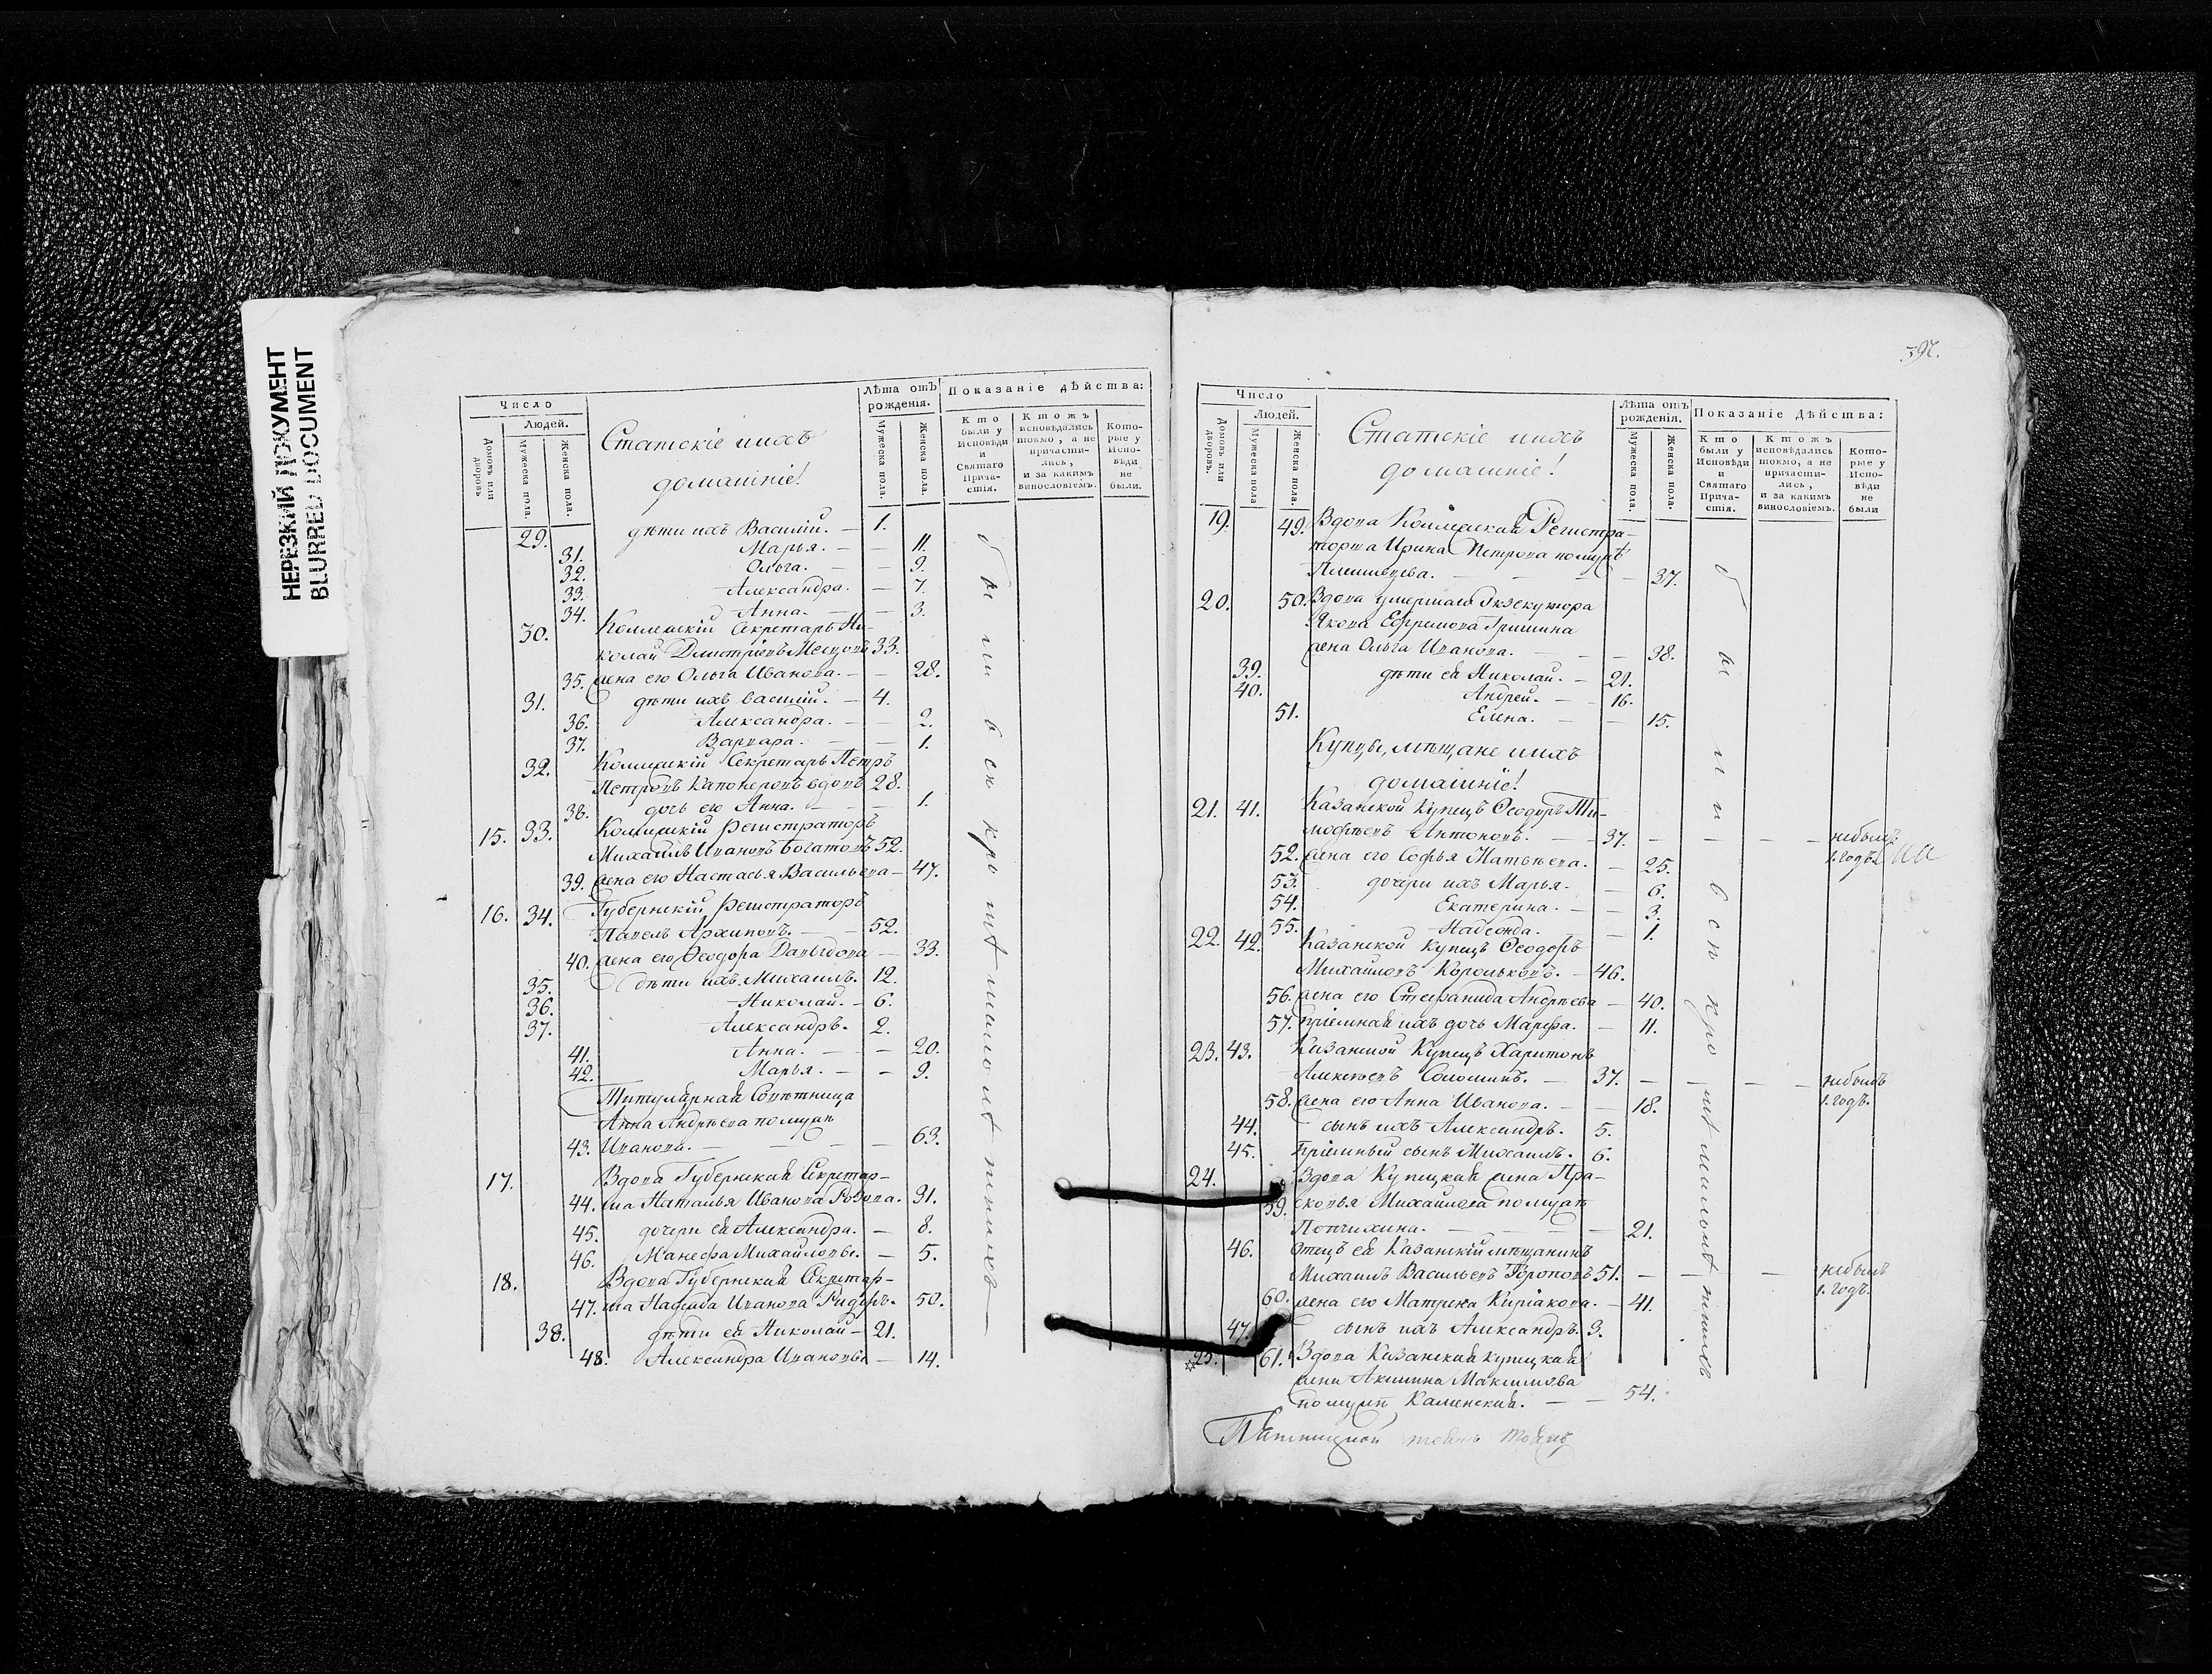 НЕРЕЗКИЙ ДОКУМЕНТ
BLURRED DOCUMENT
Число
Людей.
Домовъ или дворовъ
Мужеска пола.
Женска пола.
Статскіе иихъ
домашніе!
Лѣта отъ рожденія.
Мужеска пола.
Женска пола.
Показаніе дѣйства:
Кто были у Исповѣди и Святаго Прича-стія.
Ктожъ исповѣдались токмо, а не причасти-лись, и за какимъ винословіемъ.
Кото-рые у Испо-вѣди не были.
29. дѣти ихъ Василій. — 1.
31. Марья. — — 11.
32. Ольга. — — 9.
33. Александра. — 7.
34. Анна. — — 3.
30. Коллежскій Секретарь Ни-
колай Дмитріевъ 33.
35. жена его Ольга Иванова. — — 28.
31. дѣти ихъ Василій. — 4.
36. Александра. — — 2.
37. Варвара. — — 1.
32. Коллежскій Секретарь Петръ
Петровъ вдовъ 28.
38. дочь его Анна. — — — 1.
15. 33. Коллежскій Регистраторъ
Михаилъ Ивановъ Богатовъ 52.
39. жена его Настасья Васильева — 47.
16. 34. Губернскій Регистраторъ
Павелъ Архиповъ. — — 52.
40. жена его Ѳеодора Давыдова — 33.
35. дѣти ихъ. Михаилъ. 12.
36. Николай. — 6.
37. Александръ. 2.
41. Анна. — — 20.
42. Марья. — — 9.
Титулярная Совѣтница
Анна Андрѣева помужѣ
43. Иванова. — — — — 63.
17. Вдова Губернская Секретар-
44. ша Наталья Иванова 31.
45. дочери ея Александра. — 8.
46. Манефа Михайловы. — 5.
18. Вдова Губернская Секретар-
47. ша Надежда Иванова 50.
38. дѣти ея Николай — 21.
48. Александра Ивановы — 14.
были всѣ кромѣ малолѣтнихъ —
397.
Число
Людей.
Домовъ или дворовъ.
Мужеска пола
Женска пола.
Статскіе иихъ
домашніе!
Лѣта отъ рожденія.
Мужеска пола.
Женска пола.
Показаніе Дѣйства:
Кто были у Исповѣди и Святаго Прича-стія.
Ктожъ исповѣдались токмо, а не причасти-лись, и за какимъ винословіемъ.
Кото-рые у Испо-вѣди не были
19. 49. Вдова Коллежская Регистра-
торша Ирина Петрова помужѣ
— 37.
20. 50. Вдова умершаго Экзекутора
Якова Ефремова Гришина
жена Ольга Иванова. — — — 38.
39. дѣти ея Николай. — 21.
40. Андрей. — — 16.
51. Елена. — — 15.
Купцы, мѣщане иихъ
домашніе!
21. 41. Казанской Купецъ Ѳеодоръ Ти-
моѳѣевъ Антоновъ. — — 37. — — — — небылъ
1. годъ.
52. жена его Софья Матвѣева. — 25.
53. дочери ихъ Марья. — — 6.
54. Екатерина. — — 3.
55. Надежда. — 1.
22. 42. Казанской Купецъ Ѳеодоръ
Михайловъ Корольковъ. — 46.
56. жена его Стефанида Андрѣева — 40.
57. пріемная ихъ дочь Марфа. — 11.
23. 43. Казанской Купецъ Харитонъ
Алексѣевъ Соломинъ. — 37. — — — — небылъ
1. годъ.
58. жена его Анна Иванова. — — 18.
44. сынъ ихъ Александръ. 5.
45. Пріемный сынъ Михаилъ. 6.
24. Вдова Купецкая жена Пра-
59. сковья Михайлова помужѣ
— 21.
46. Отецъ ея Казанскій мѣщанинъ
Михаилъ Васильевъ Тороповъ 51. — — — небылъ
1. годъ.
60. жена его Матрена Киріакова. — 41.
47. сынъ ихъ Александръ. 3.
25. 61. Вдова Казанская купецкая
жена Акилина Максимова
помужѣ Каменская. — — 54.
были всѣ кромѣ малолѣтнихъ